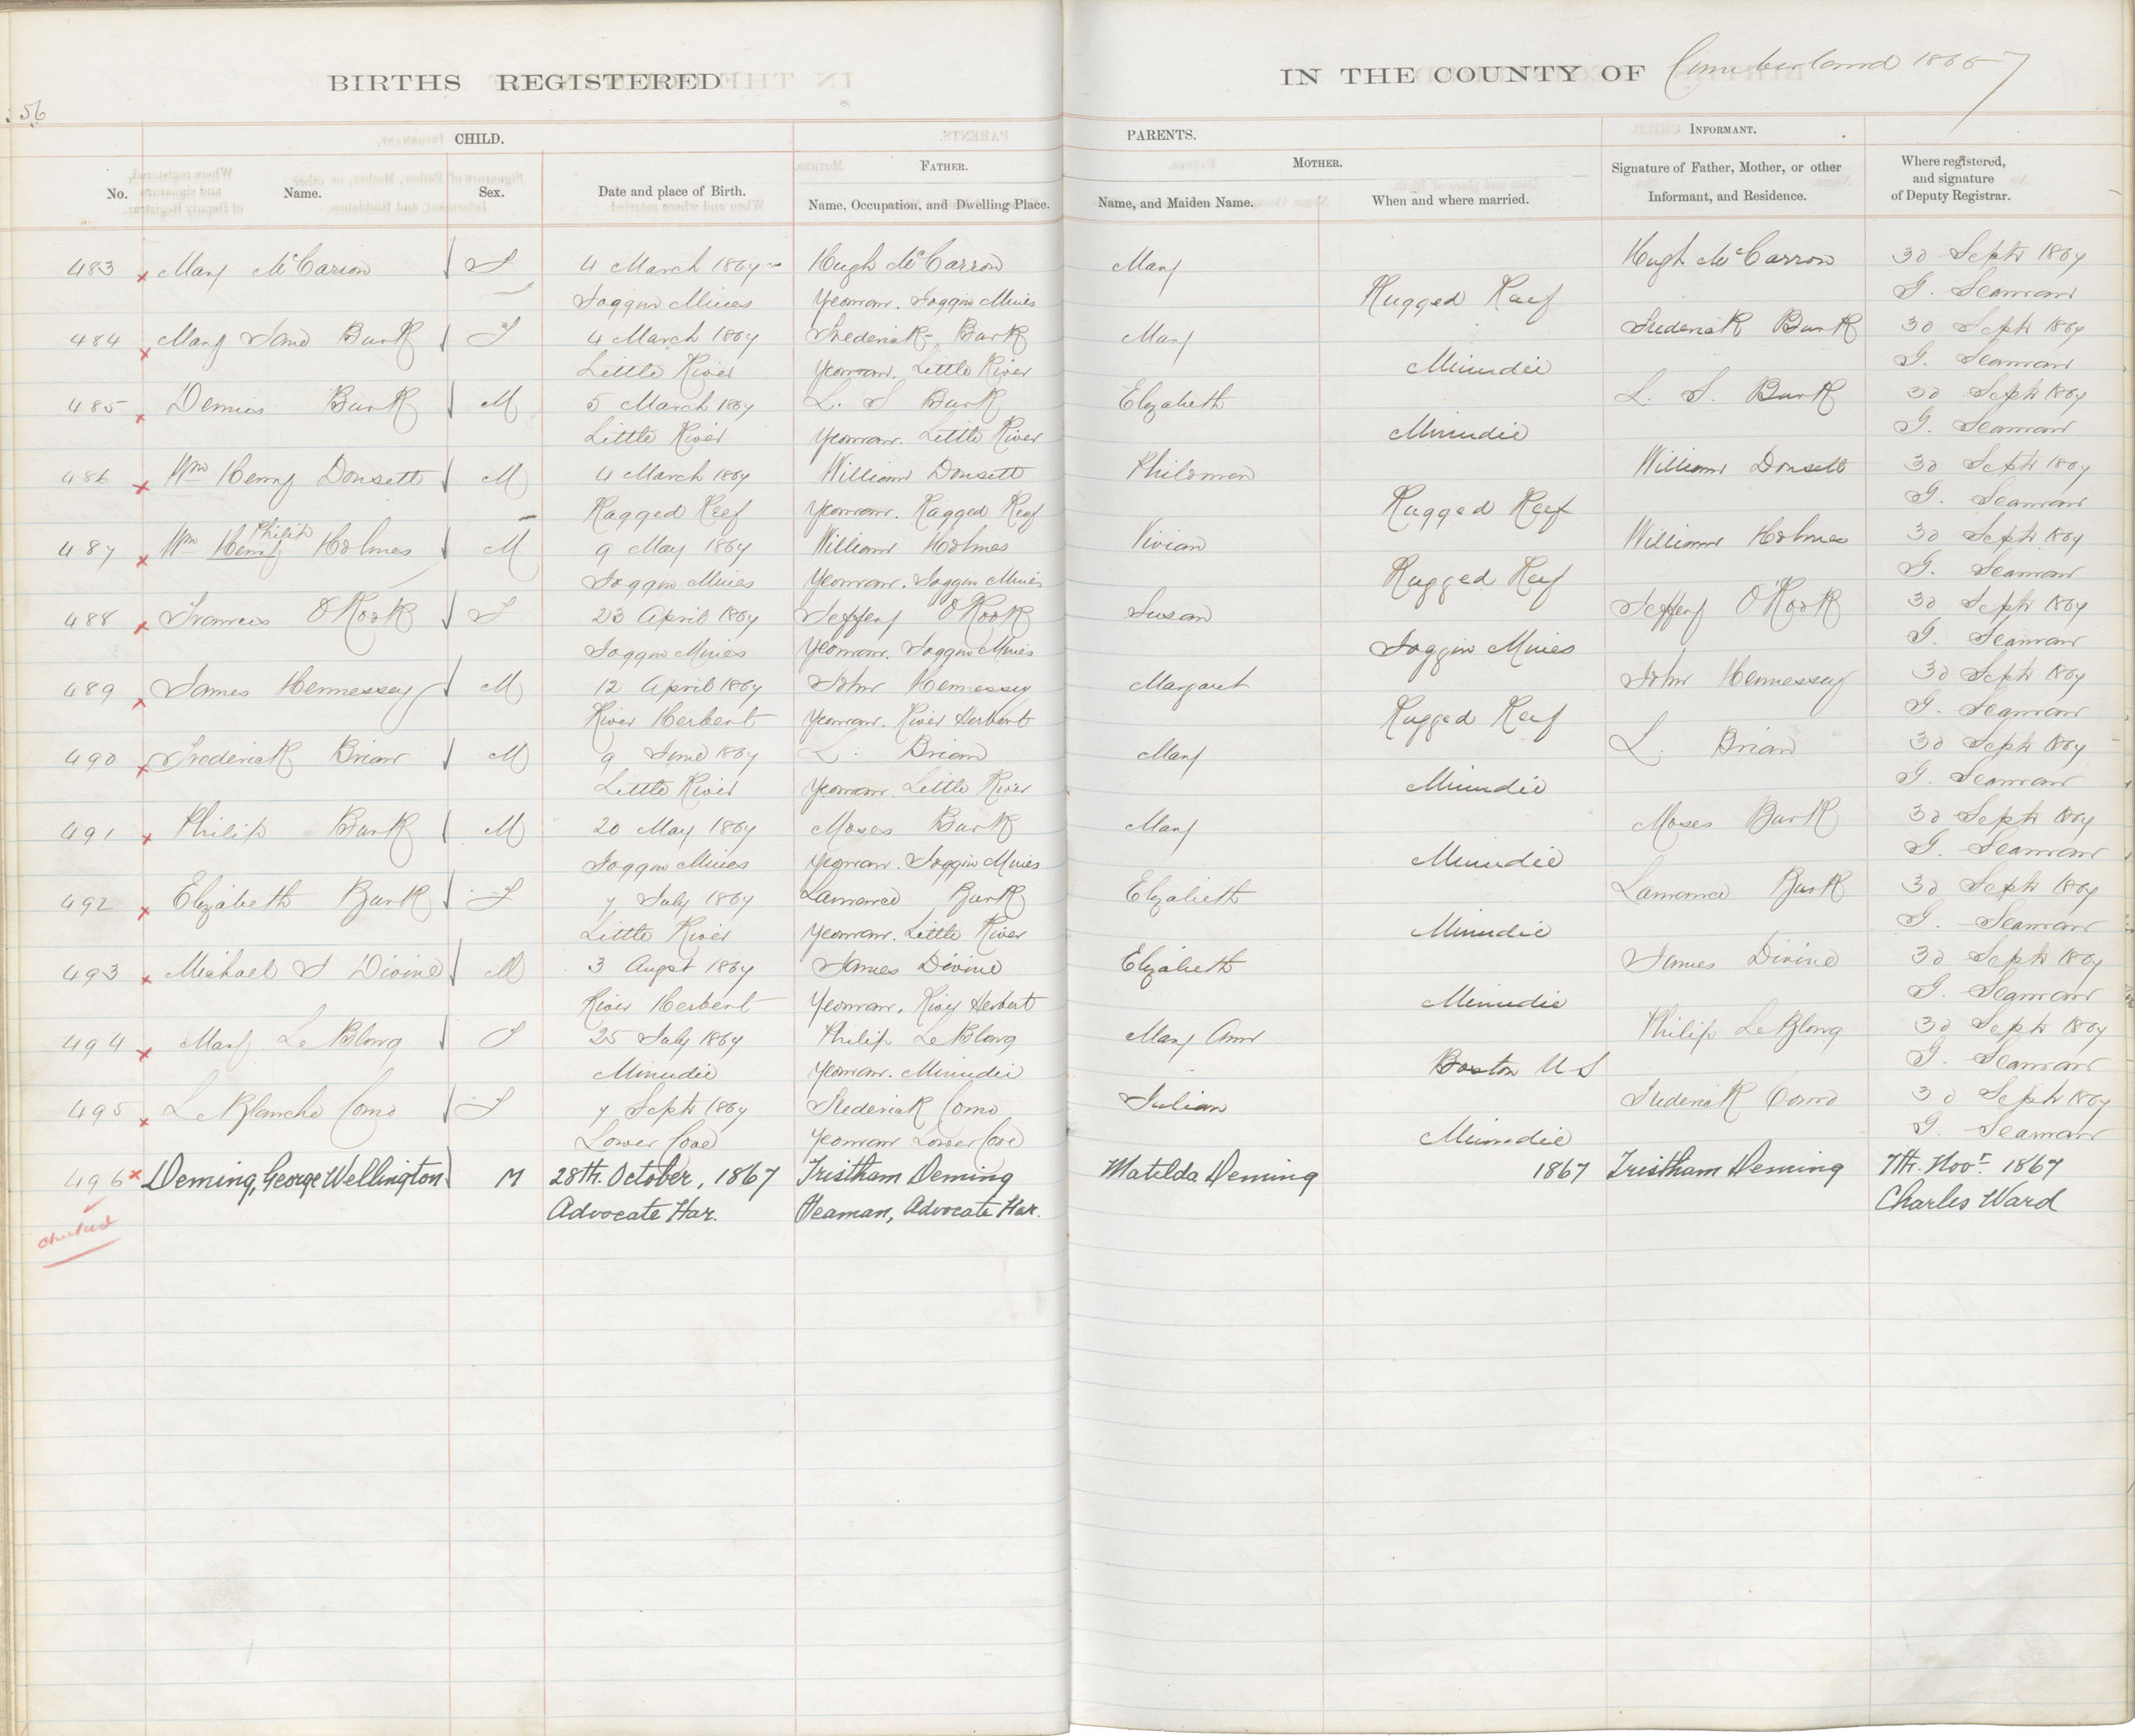 56
BIRTHS REGISTERED IN THE COUNTY OF Cumberland 1867
CHILD. PARENTS. INFORMANT.
No. Name. Sex. Date and place of Birth. FATHER. Name, Occupation, and Dwelling Place. MOTHER. Name, and Maiden Name. When and where married. Signature of Father, Mother, or other Informant, and Residence. Where registered, and signature of Deputy Registrar.
483 x Mary McCarron F 4 March 1867 Hugh McCarron Mary Hugh McCarron 30 Sept 1867
Joggin Mines Yeoman. Joggin Mines Rugged Reef G. Seaman
484 x Mary Jane Burk F 4 March 1867 Frederick Burk Mary Frederick Burk 30 Sept 1867
Little River Yeoman. Little River Minudie G. Seaman
485 x Dennis Burk M 5 March 1867 L. S Burk Elizabeth L. S. Burk 30 Sept 1867
Little River Yeoman. Little River Minudie G. Seaman
486 x Wm Henry Donsett M 4 March 1867 William Donsett Philomen William Donsett 30 Sept 1867
Ragged Reef Yeoman. Ragged Reef Rugged Reef G. Seaman
487 x Wm Henry Philip Holmes M 9 May 1867 William Holmes Vivian William Holmes 30 Sept 1867
Joggin Mines Yeoman. Joggin Mines Rugged Reef G. Seaman
488 x Frances O'Rook F 23 April 1867 Jeffery O'Rook Susan Jeffery O'Rook 30 Sept 1867
Joggin Mines Yeoman. Joggin Mines Joggin Mines G. Seaman
489 x James Hennessey M 12 April 1867 John Hennessey Margaret John Hennessey 30 Sept 1867
River Herbert Yeoman. River Herbert Rugged Reef G. Seaman
490 x Frederick Brian M 9 June 1867 L. Brian Mary L. Brian 30 Sept 1867
Little River Yeoman Little River Minudie G. Seaman
491 x Philip Burk M 20 May 1867 Moses Burk Mary Moses Burk 30 Sept 1867
Joggin Mines Yeoman. Joggin Mines Minudie G. Seaman
492 x Elizabeth Burk F 7 July 1867 Lawrence Burk Elizabeth Lawrence Burk 30 Sept 1867
Little River Yeoman. Little River Minudie G. Seaman
493 x Michael S Divine M 3 Augst 1867 James Divine Elizabeth James Divine 30 Sept 1867
River Herbert Yeoman. River Herbert Minudie G. Seaman
494 x Mary LeBlong F 25 July 1867 Philip LeBlong Mary Ann Philip LeBlong 30 Sept 1867
Minudie Yeoman. Minudie Boston U S G. Seaman
495 x LeBlanche Como F 7 Sept 1867 Frederick Como Julian Frederick Como 30 Sept 1867
Lower Cove Yeoman Lower Cove Minudie G. Seaman
496 x Deming, George Wellington M 28th. October, 1867 Tristham Deming Matilda Deming 1867 Tristham Deming 7th. Novr. 1867
checked Advocate Har. Seaman, Advocate Har. Charles Ward